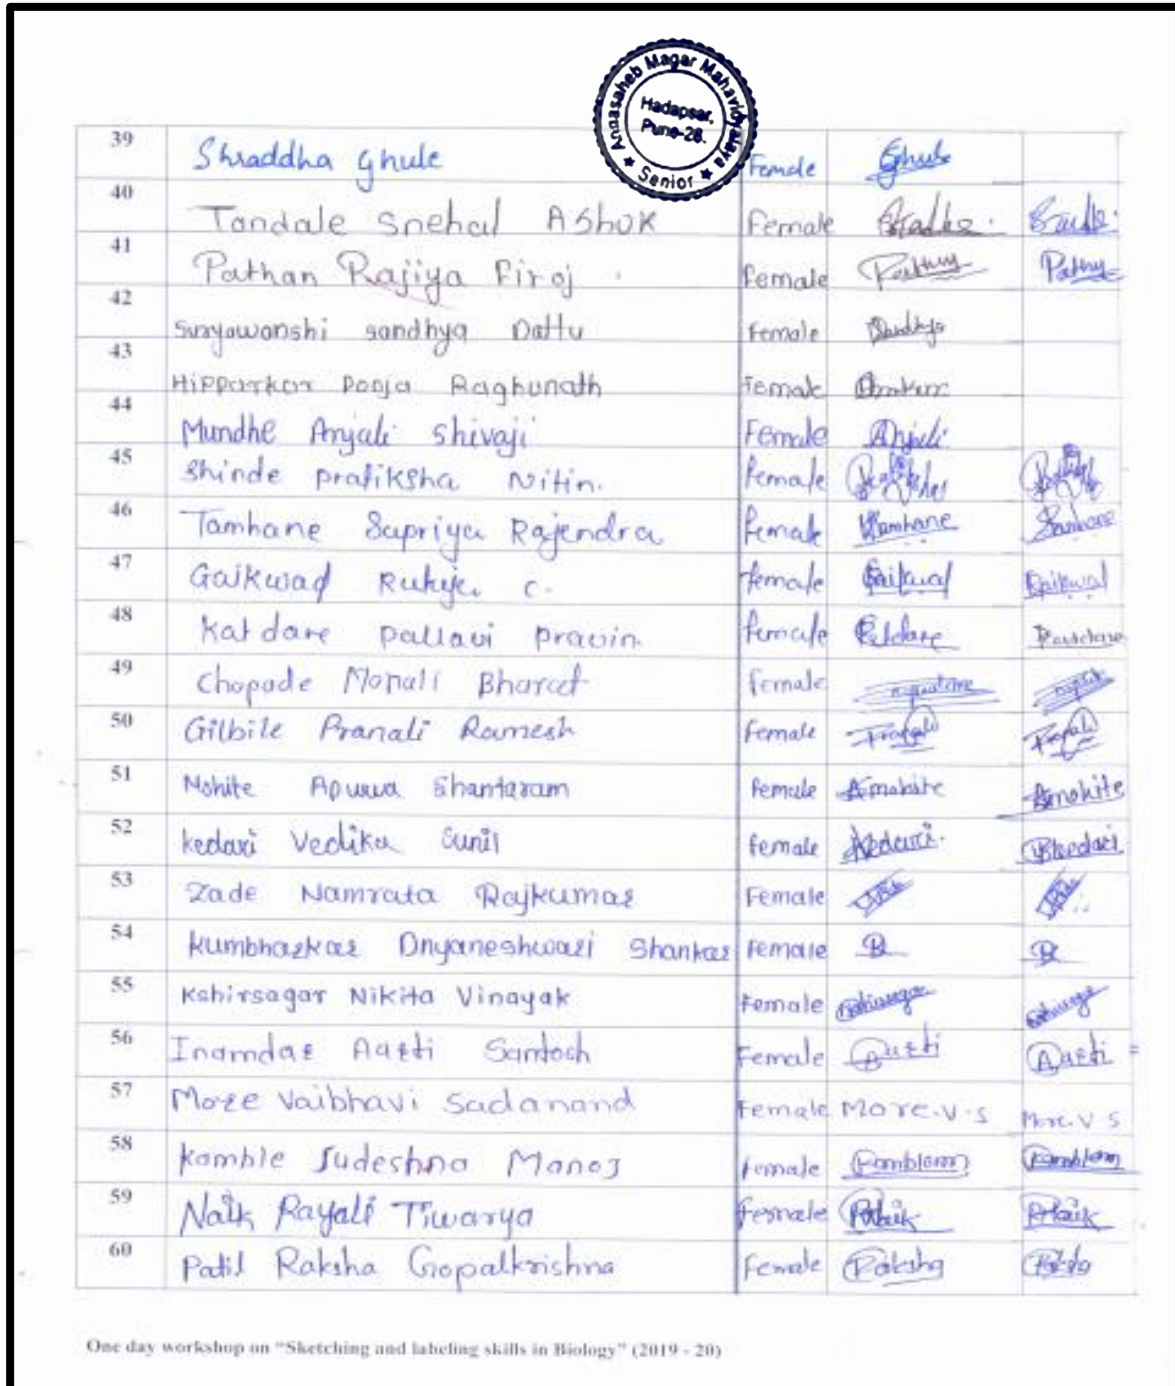 Annasaheb Magar Mahavidyalaya
Hadapsar,
Pune-28.
★ Senior ★
39 Shraddha Ghule Female Ghule
40 Tandale Snehal Ashok Female
41 Pathan Rajiya Firoj Female Pathan
42 Suryawanshi sandhya Dattu Female Sandhya
43 Hipparkar Pooja Raghunath Female
44 Mundhe Anjali Shivaji Female Anjali
45 Shinde pratiksha Nitin. Female
46 Tamhane Supriya Rajendra Female Tamhane Tamhane
47 Gaikwad C. Female Gaikwad Gaikwad
48 Katdare pallavi pravin. Female Katdare
49 Chopade Monali Bharat Female
50 Gilbile Pranali Ramesh Female Pranali Pranali
51 Mohite Apurva Shantaram Female Amohite Amohite
52 kedari Vedika Sunil Female Kedari.
53 Zade Namrata Rajkumar Female
54 kumbharkar Dnyaneshwari Shankar Female
55 Kshirsagar Nikita Vinayak Female
56 Inamdar Aarti Santosh Female Aarti Aarti
57 More Vaibhavi Sadanand Female More.V.S More.V S
58 Kamble Sudeshna Manoj Female
59 Naik Payali Tiwarya Female
60 Patil Raksha Gopalkrishna Female Raksha
One day workshop on “Sketching and labeling skills in Biology” (2019 - 20)